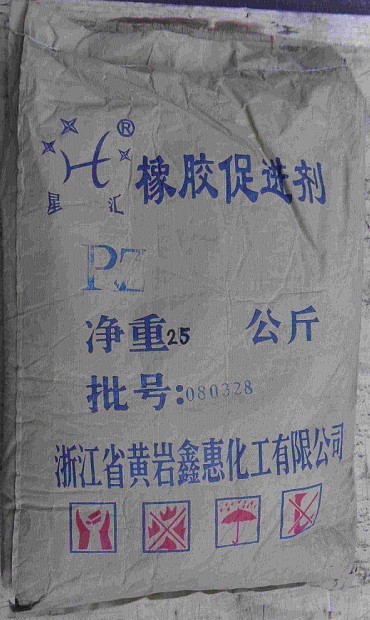 ®
星汇
橡胶促进剂
PZ
净重25 公斤
批号:080328
浙江省黄岩鑫惠化工有限公司